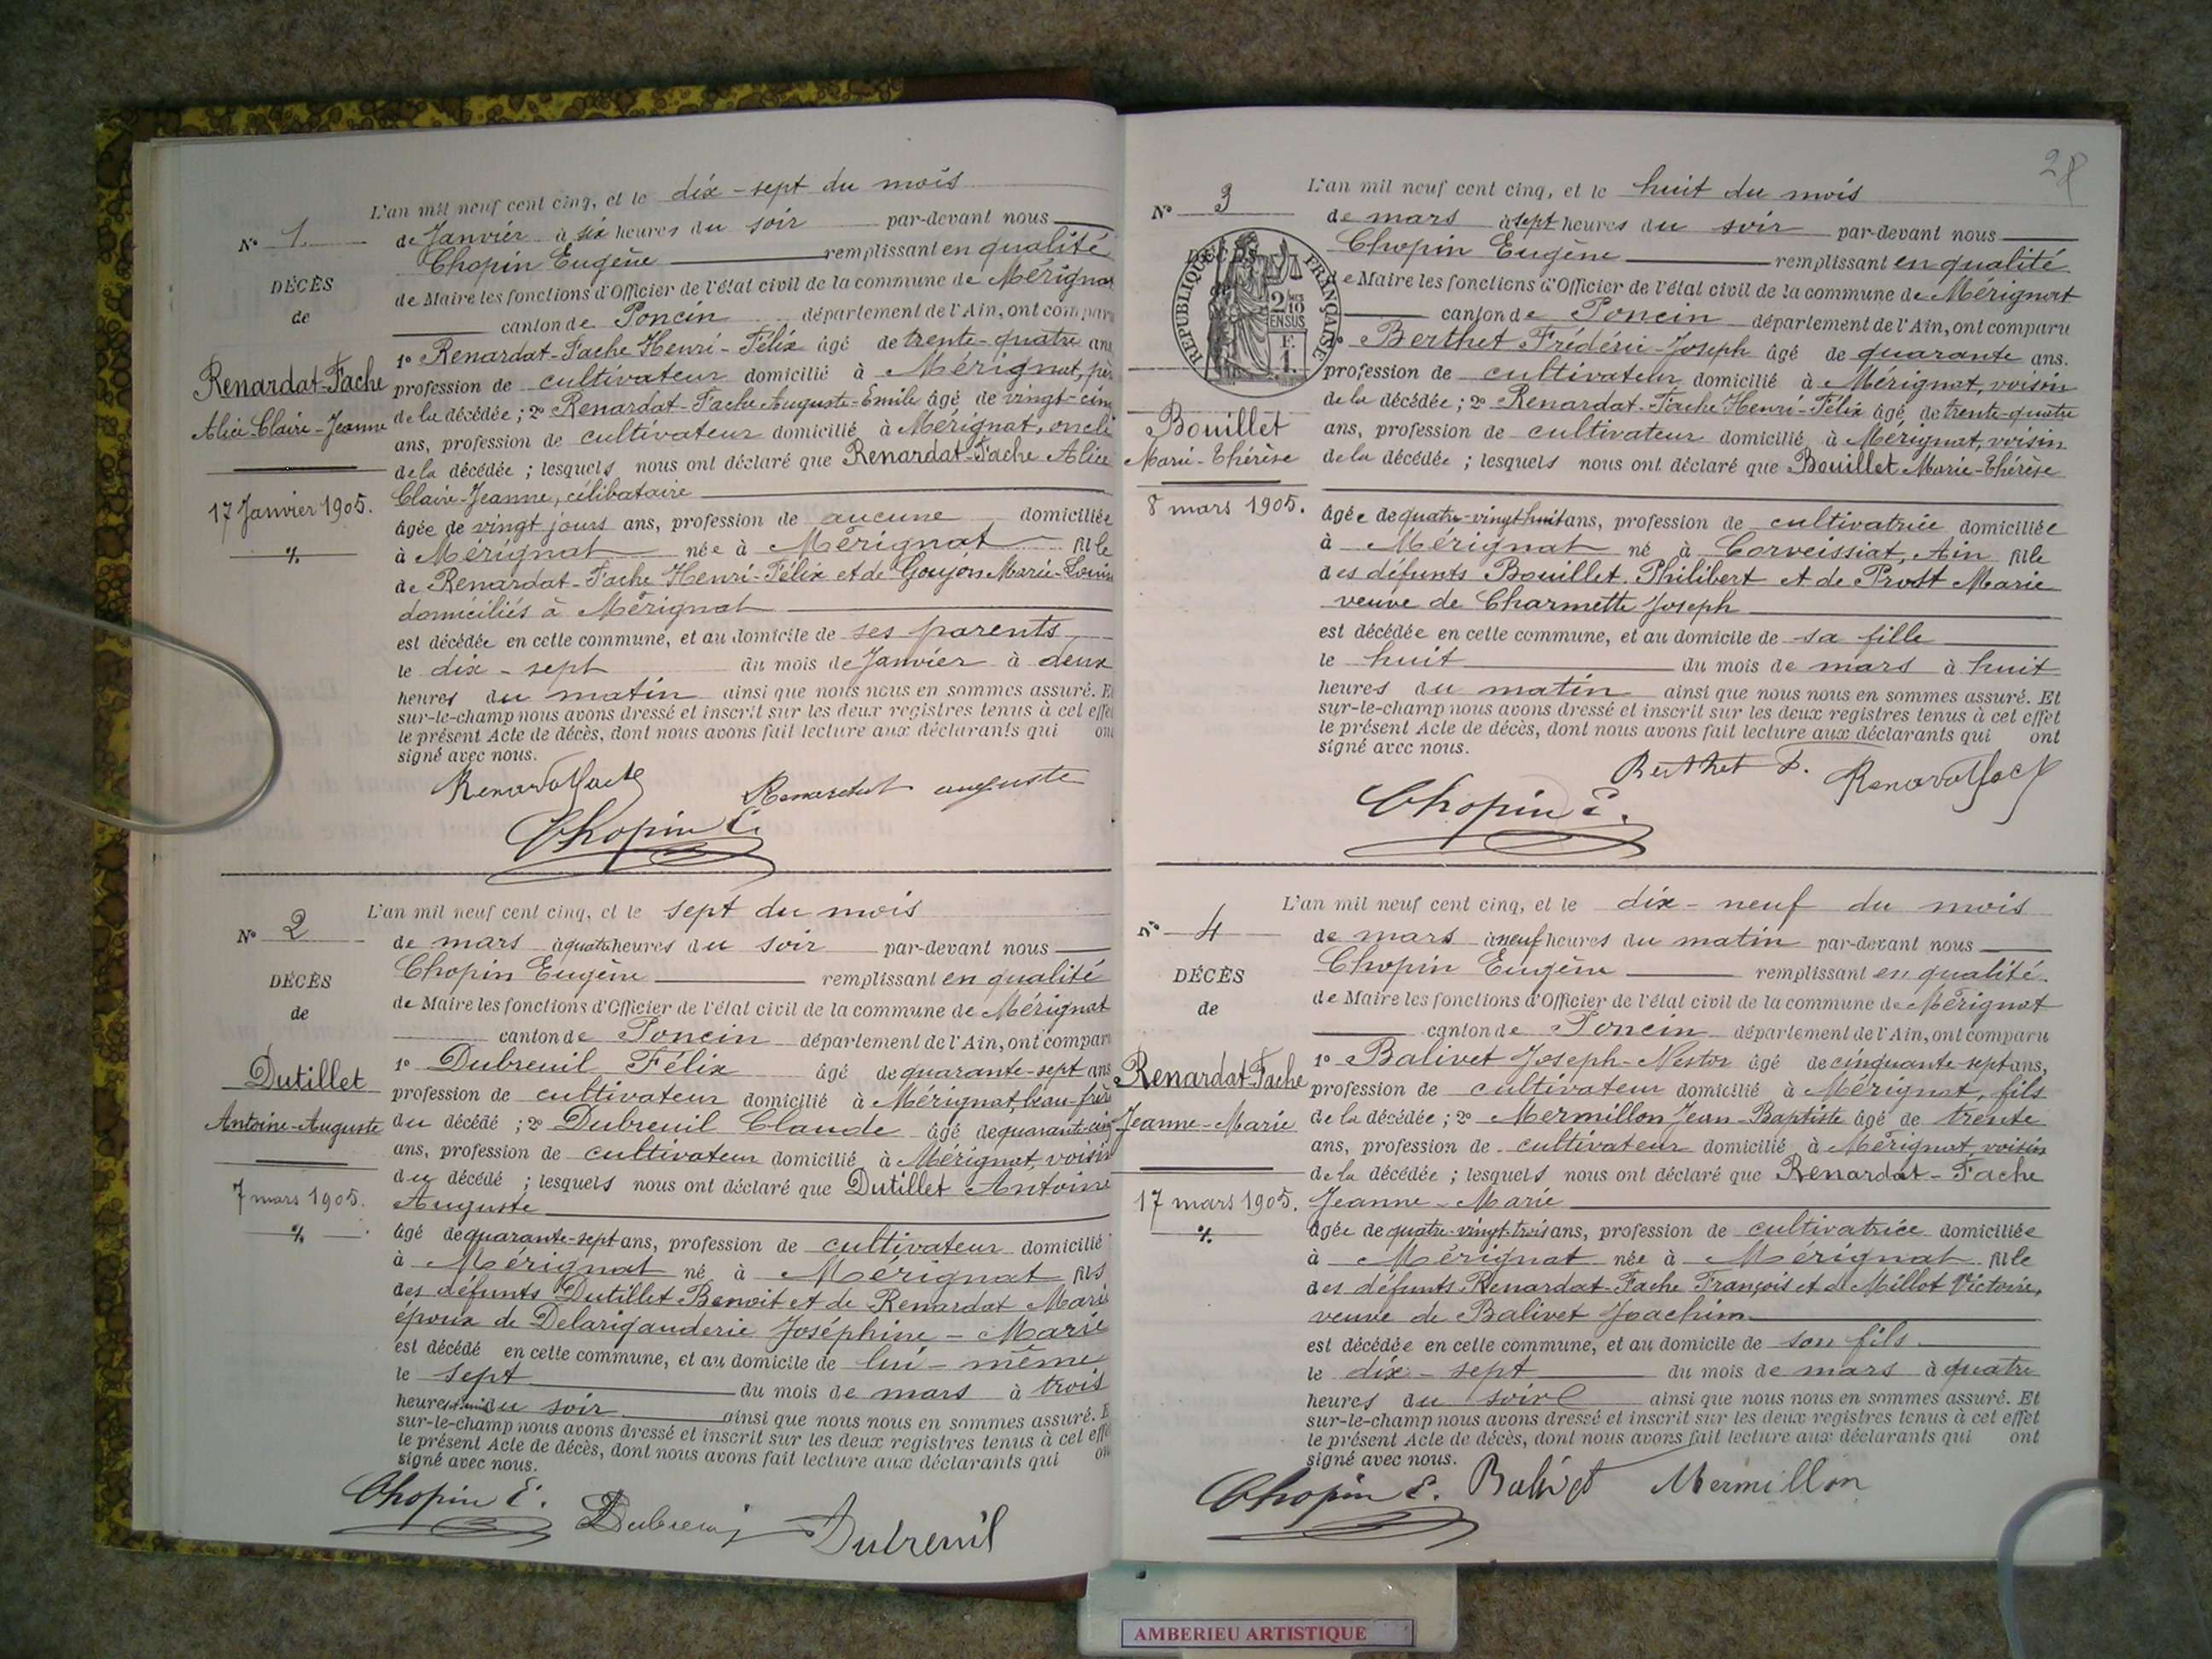 L'an mil neuf cent cinq, et le dix-sept du mois
N° 1. de Janvier à six heures du soir par-devant nous
Chopin Eugène remplissant en qualité
DÉCÈS
de Maire les fonctions d'Officier de l'état civil de la commune de Mérignat
de
canton de Poncin département de l'Ain, ont comparu
1° Renardat-Fache Henri-Félix âgé de trente-quatre ans
Renardat-Fache
profession de cultivateur domicilié à Mérignat, père
Alice-Claire-Jeanne
de la décédée ; 2° Renardat-Fache Auguste-Emile âgé de vingt-cinq
ans, profession de cultivateur domicilié à Mérignat, oncle
de la décédée ; lesquels nous ont déclaré que Renardat-Fache Alice
17 Janvier 1905.
Claire-Jeanne, célibataire
âgée de vingt jours ans, profession de aucune domiciliée
à Mérignat née à Mérignat fille
de Renardat-Fache Henri-Félix et de Goujon Marie-Louise
domiciliés à Mérignat
est décédée en cette commune, et au domicile de ses parents
le dix-sept du mois de Janvier à deux
heures du matin ainsi que nous nous en sommes assuré. Et
sur-le-champ nous avons dressé et inscrit sur les deux registres tenus à cet effet
le présent Acte de décès, dont nous avons fait lecture aux déclarants qui ont
signé avec nous.
Renardat Fache Renardat auguste
Chopin E.
L'an mil neuf cent cinq, et le sept du mois
N° 2 de mars à quatre heures du soir par-devant nous
Chopin Eugène remplissant en qualité
DÉCÈS
de Maire les fonctions d'Officier de l'état civil de la commune de Mérignat
de
canton de Poncin département de l'Ain, ont comparu
1° Dubreuil Félix âgé de quarante-sept ans
Dutillet
profession de cultivateur domicilié à Mérignat, beau-frère
Antoine-Auguste
du décédé ; 2° Dubreuil Claude âgé de quarante-cinq
ans, profession de cultivateur domicilié à Mérignat, voisin
du décédé ; lesquels nous ont déclaré que Dutillet Antoine
7 mars 1905.
Auguste
âgé de quarante-sept ans, profession de cultivateur domicilié
à Mérignat né à Mérignat fils
des défunts Dutillet Benoit et de Renardat Marie
époux de Delarigauderie Joséphine-Marie
est décédé en cette commune, et au domicile de lui-même
le sept du mois de mars à trois
heures du soir ainsi que nous nous en sommes assuré. Et
sur-le-champ nous avons dressé et inscrit sur les deux registres tenus à cet effet
le présent Acte de décès, dont nous avons fait lecture aux déclarants qui ont
signé avec nous.
Chopin E. Dubreuil Dubreuil
28
L'an mil neuf cent cinq, et le huit du mois
N° 3 de mars à sept heures du soir par-devant nous
Chopin Eugène remplissant en qualité
RÉPUBLIQUE FRANÇAISE
2/10 EN SUS
F. 1.
de Maire les fonctions d'Officier de l'état civil de la commune de Mérignat
canton de Poncin département de l'Ain, ont comparu
Berthet Frédéric-Joseph âgé de quarante ans.
profession de cultivateur domicilié à Mérignat, voisin
de la décédée ; 2° Renardat-Fache Henri-Félix âgé de trente-quatre
Bouillet
ans, profession de cultivateur domicilié à Mérignat, voisin
Marie-Thérèse
de la décédée ; lesquels nous ont déclaré que Bouillet Marie-Thérèse
8 mars 1905.
âgée de quatre-vingt huit ans, profession de cultivatrice domiciliée
à Mérignat né à Corveissiat, Ain fille
des défunts Bouillet Philibert et de Prost Marie
veuve de Charmette Joseph
est décédée en cette commune, et au domicile de sa fille
le huit du mois de mars à huit
heures du matin ainsi que nous nous en sommes assuré. Et
sur-le-champ nous avons dressé et inscrit sur les deux registres tenus à cet effet
le présent Acte de décès, dont nous avons fait lecture aux déclarants qui ont
signé avec nous.
Berthet F. Renardat Fache
Chopin E.
L'an mil neuf cent cinq, et le dix-neuf du mois
N° 4 de mars à neuf heures du matin par-devant nous
Chopin Eugène remplissant en qualité
DÉCÈS
de Maire les fonctions d'Officier de l'état civil de la commune de Mérignat
de
canton de Poncin département de l'Ain, ont comparu
1° Balivet Joseph-Nestor âgé de cinquante-sept ans,
Renardat-Fache
profession de cultivateur domicilié à Mérignat, fils
Jeanne-Marie
de la décédée ; 2° Mermillon Jean-Baptiste âgé de trente
ans, profession de cultivateur domicilié à Mérignat, voisin
de la décédée ; lesquels nous ont déclaré que Renardat-Fache
17 mars 1905.
Jeanne-Marie
âgée de quatre-vingt-trois ans, profession de cultivatrice domiciliée
à Mérignat née à Mérignat fille
des défunts Renardat-Fache François et de Millot Victoire,
veuve de Balivet Joachim
est décédée en cette commune, et au domicile de son fils
le dix-sept du mois de mars à quatre
heures du soir ainsi que nous nous en sommes assuré. Et
sur-le-champ nous avons dressé et inscrit sur les deux registres tenus à cet effet
le présent Acte de décès, dont nous avons fait lecture aux déclarants qui ont
signé avec nous.
Chopin E. Balivet Mermillon
AMBERIEU ARTISTIQUE